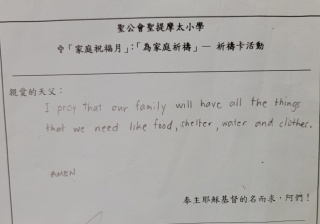 聖公會聖提摩太小學
「家庭祝福月」:「為家庭祈禱」— 祈禱卡活動
親愛的天父:
I pray that our family will have all the things
that we need like food, shelter, water and clothes.
AMEN
奉主耶穌基督的名而求，阿們！